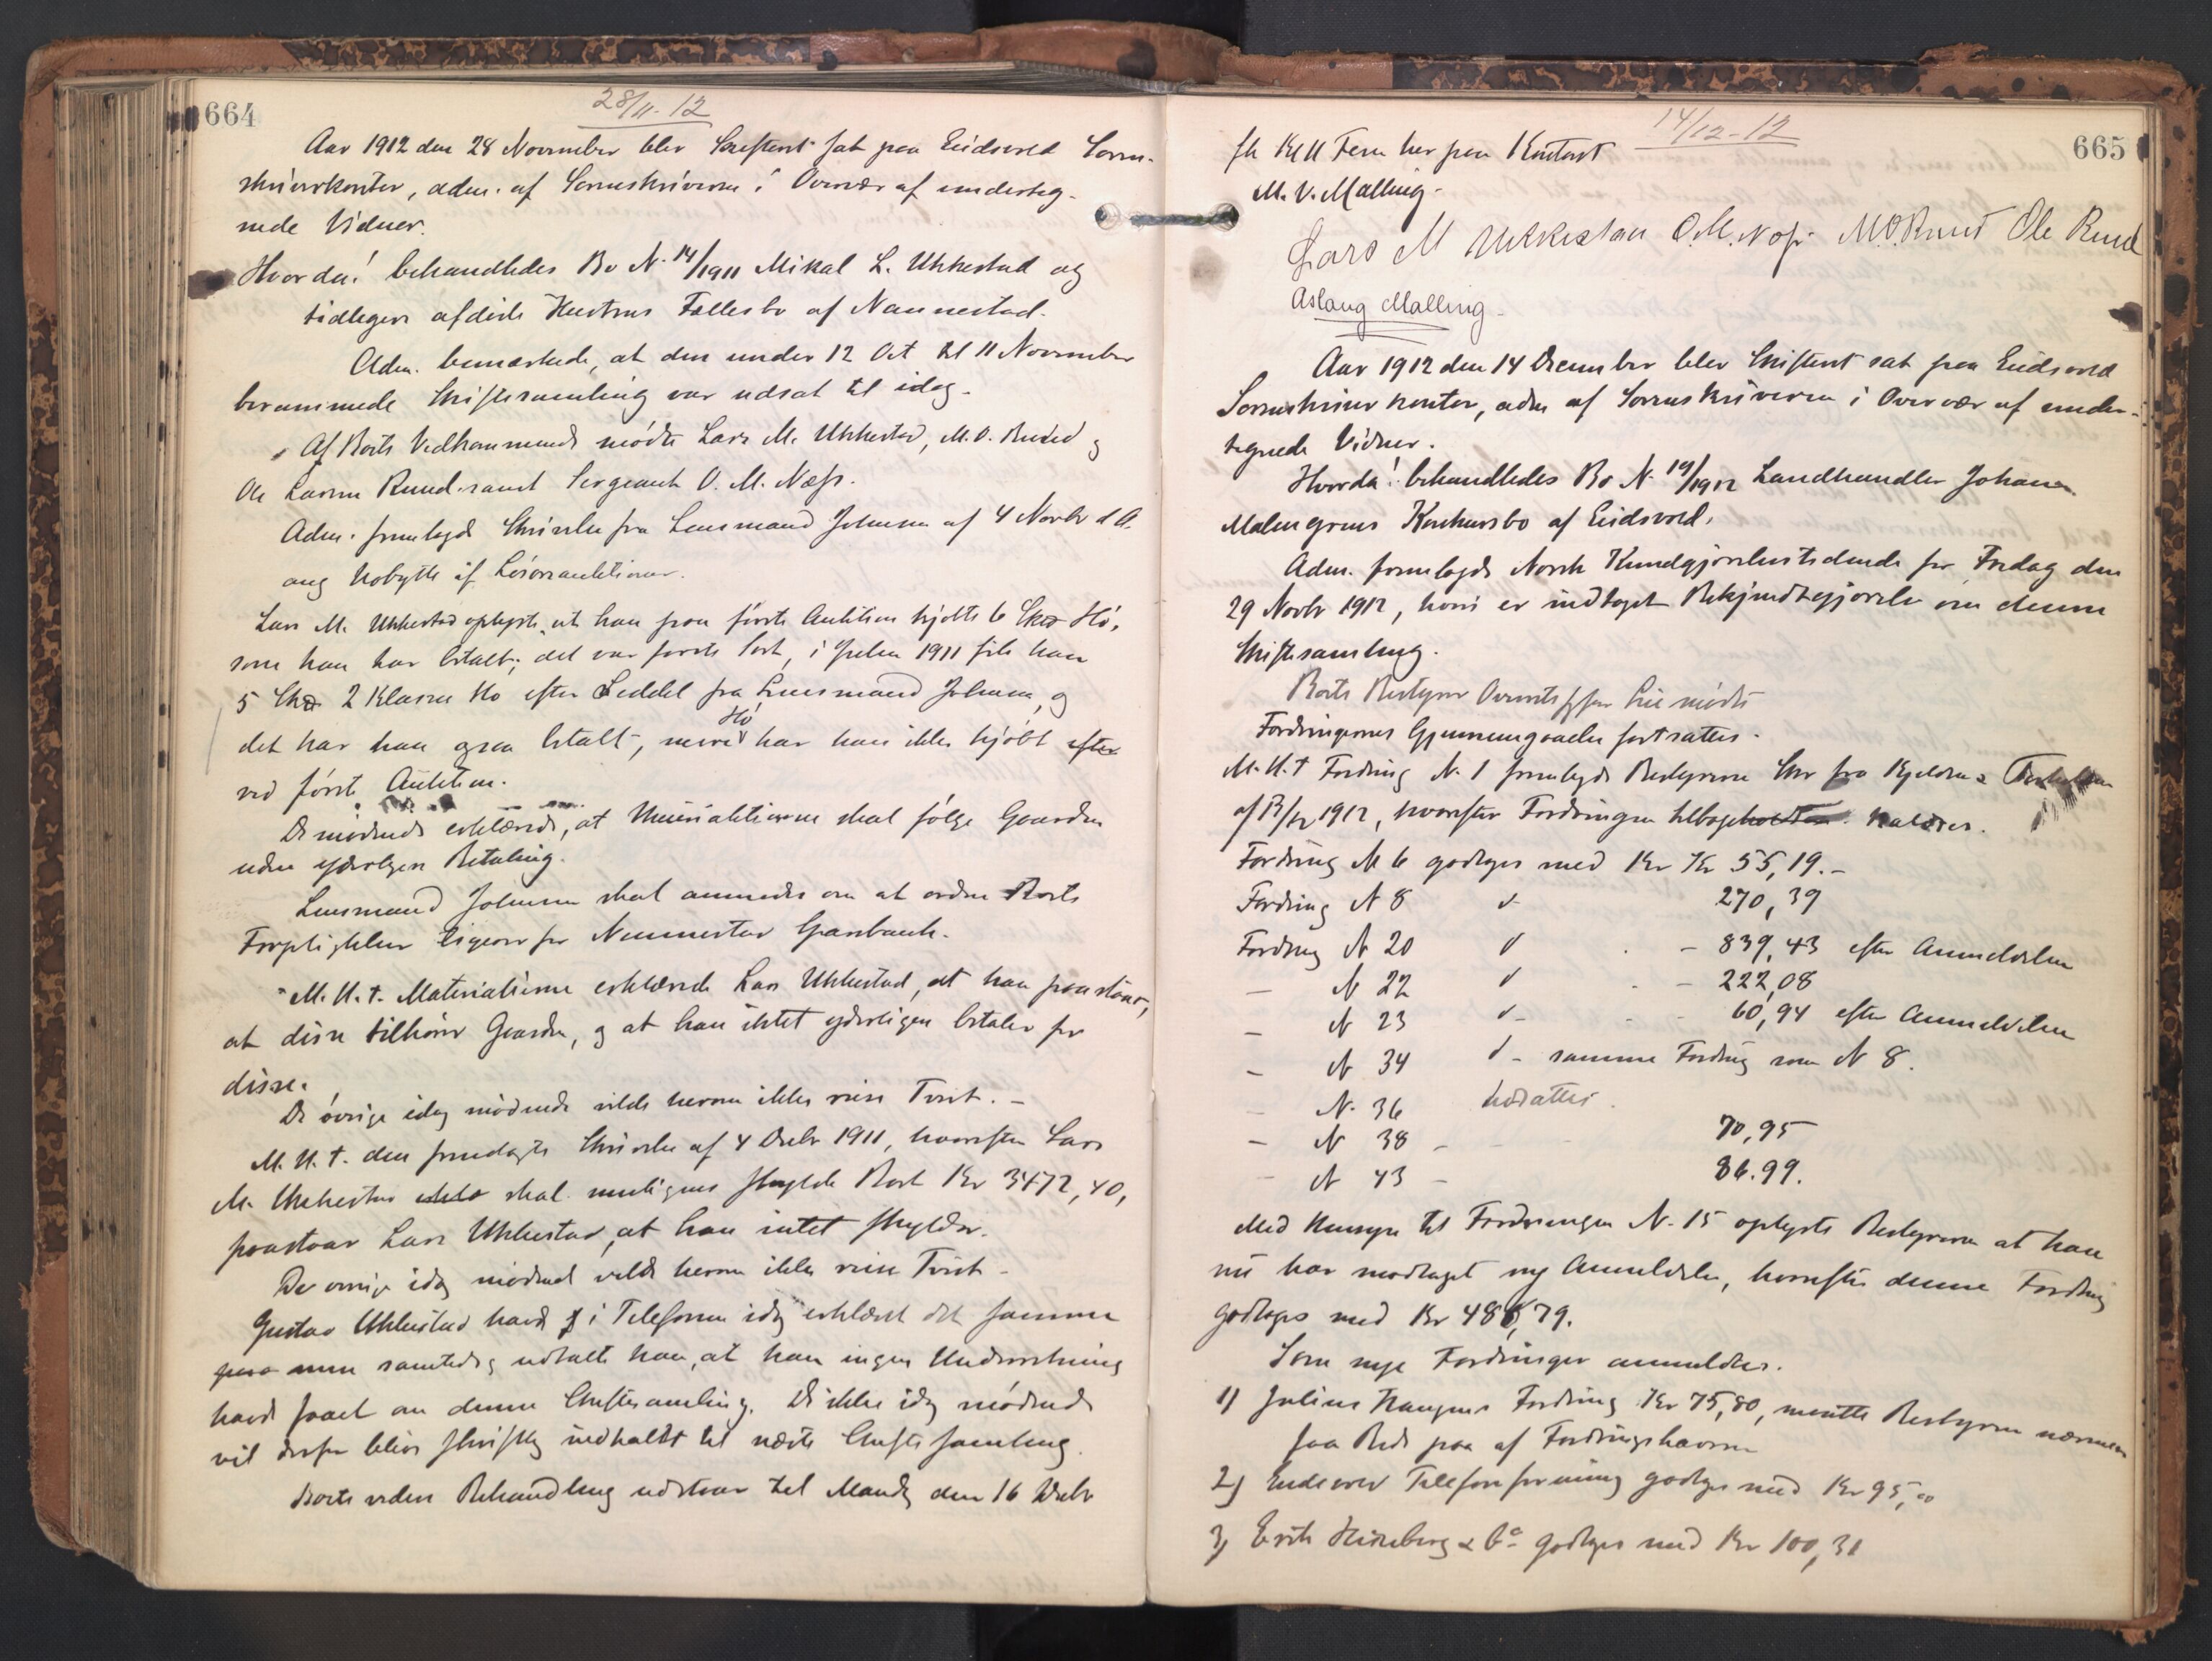 664
28/11-12
Aar 1912 den 28 November blev Skifteret sat paa Eidsvold Soren-
skriverkontor, adm. af Sorenskriveren i Overvær af underteg-
nede Vidner.
Hvorda! behandledes Bo N. 14/1911 Mikal L. Ukkestad og
tidligere afdøde Hustrus Fællesbo af Nannestad.
Adm. bemærkede, at den under 12 Oct til 11 November
berammede Skiftesamling var udsat til idag.
Af Boets Vedkommende mødte Lars M. Ukkestad, M.O. Ruud og
Ole Larsen Ruud samt Sergeant O. M. Næss.
Adm. fremlagde Skrivelse fra Lensmand Johnsen af 4 Novbr d A.
ang Udbytte af Løsøreauktioner.
Lars M. Ukkestad oplyste, at han paa første Auktion kjøbte 6 Skd Hø,
som han har betalt; det var første Sort, i Julen 1911 fik han
5 Skd 2 Klasses Hø efter Seddel fra Lensmand Johnsen, og
det har han ogsaa betalt, mere Hø har han ikke kjøbt efter
ved første Auktion.
De mødende erklærede, at Materialierne skal følge Gaarden
uden yderligere Betaling.
Lensmand Johnsen skal anmodes om at ordne Boets
Forpligtelser ligeover for Nannestad Sparebank.
M. H. t. Materialierne erklærede Lars Ukkestad, at han paastaar,
at disse tilhører Gaarden, og at han intet yderligere betaler for
disse.
De øvrige idag mødende vilde herom ikke reise Tvist. -
M. H. t. den fremlagte Skrivelse af 4 Decbr 1911, hvorefter Lars
M. Ukkestad skal muligens skylde Boet Kr 3472,40,
paastaar Lars Ukkestad, at han intet skylder.
De øvrige idag mødende vilde herom ikke reise Tvist -
Gustav Ukkestad havde i Telefonen idag erklæret det samme
samtidig udtalte han, at han ingen Underretning
havde faaet om denne Skiftesamling. De ikke idag mødende
vil derfor blive skriftlig indkaldt til næste Skiftesamling.
Boets videre Behandling udstaar til Mandag den 16 Decbr
14/12-12
665
Kl 11 Form her paa Kontoret
M. V. Malling.
Lars M Ukkestad O.M.Næss M.O.Ruud Ole Ruud
Aslaug Malling.
Aar 1912 den 14 December blev Skifteret sat paa Eidsvold
Sorenskriverkontor, adm af Sorenskriveren i Overvær af under-
tegnede Vidner.
Hvorda! behandledes Bo N. 19/1912 Landhandler Johan
Malmgrens Konkursbo af Eidsvold.
Adm. fremlagde Norsk Kundgjørelsestidende for Fredag den
29 Novbr 1912, hvori er indtaget Bekjendtgjørelse om denne
Skiftesamling.
Boets Bestyrer Overretssagfører Lie mødte
Fordringernes Gjennemgaaelse fortsattes.
M. H. t Fordring N. 1 fremlagde Bestyreren Skr fra
af 13/12 1912, hvorefter Fordringen tilbagekaldes.
Fordring N 6 godtages med Kr Kr 55,19.-
Fordring N 8 d- 270,39
Fordring N 20 d - 839,43 efter Anmeldelsen
- N 22 d - 222,08
- N 23 d- - 60,94 efter Anmeldelsen
- N 34 d- samme Fordring som N 8.
- N. 36 udsattes.
- N 38 - 70,95
- N 43 - 86.99.
Med Hensyn til Fordringen N. 15 oplyste Bestyreren at han
nu har modtaget ny Anmeldelse, hvorefter denne Fordring
godtages med Kr 486,79.
Som nye Fordringer anmeldtes.
1) Julius Haugens Fordring Kr 75,80, maatte Bestyreren nærmere
faa Rede paa af Fordringshaveren
2) Eidsvold Telefonforening godtages med Kr 95,00
3) Erik Heineberg & Co godtages med Kr 100,31